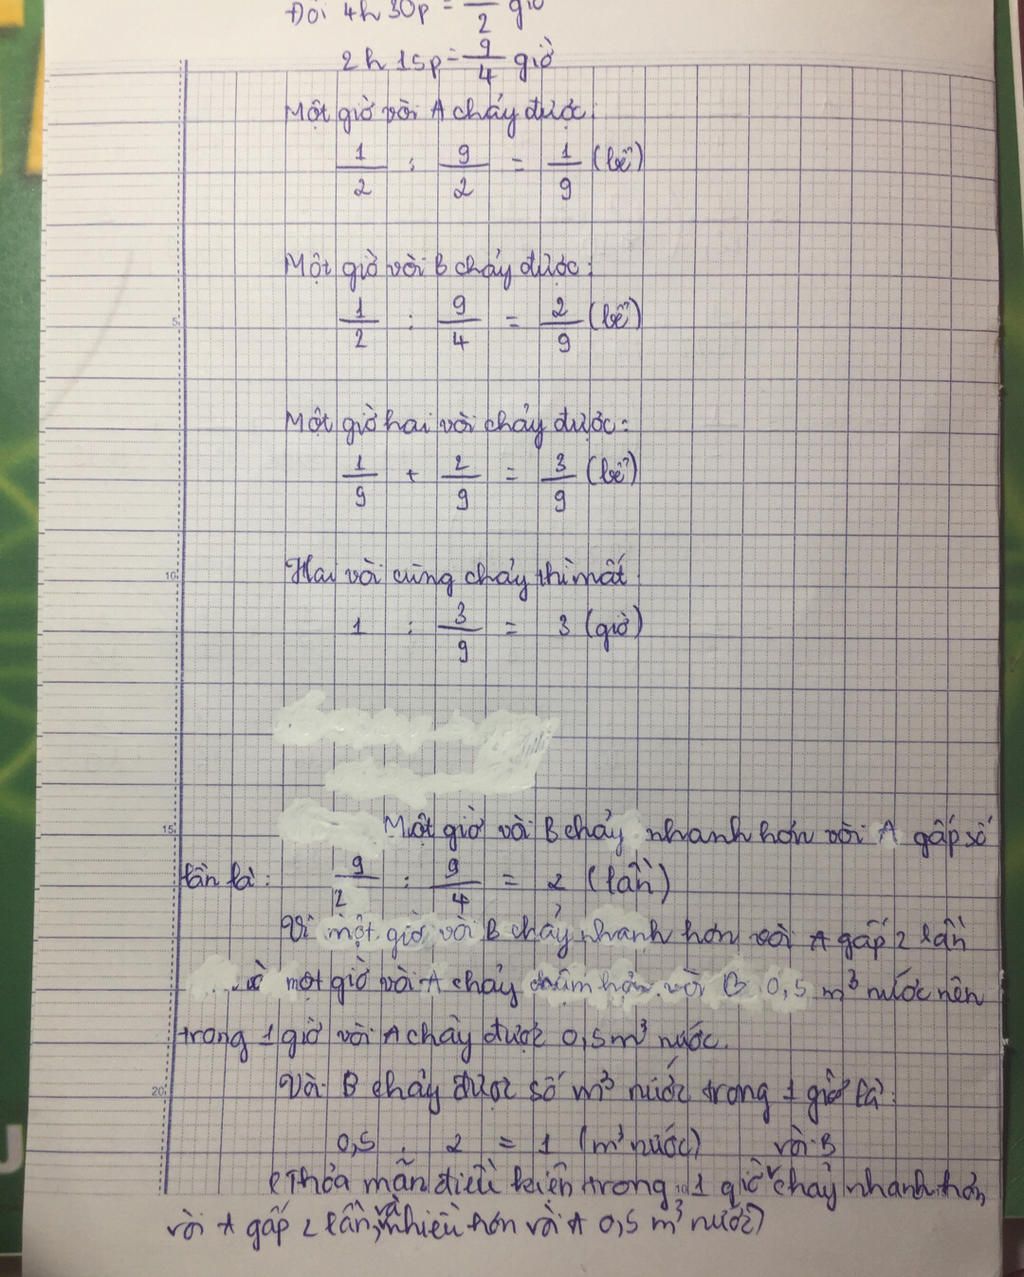 Đổi 4h 30p = 2 giờ
2h 15p = 9/4 giờ
Một giờ vòi A chảy được:
1/2 : 9/2 = 1/9 (bể)
Một giờ vòi B chảy được:
5
1/2 : 9/4 = 2/9 (bể)
Một giờ hai vòi chảy được:
1/9 + 2/9 = 3/9 (bể)
10
Hai vòi cùng chảy thì mất
1 : 3/9 = 3 (giờ)
15
Một giờ vòi B chảy nhanh hơn vòi A gấp số
lần là: 9/2 : 9/4 = 2 (lần)
Vì một giờ vòi B chảy nhanh hơn vòi A gấp 2 lần
một giờ vòi A chảy chậm hơn vòi B 0,5 m³ nước nên
trong 1 giờ vòi A chảy được 0,5m³ nước.
20
Vòi B chảy được số m³ nước trong 1 giờ là:
0,5 . 2 = 1 (m³ nước)
(Thỏa mãn điều kiện trong 1 giờ vòi B chảy nhanh hơn
vòi A gấp 2 lần, và nhiều hơn vòi A 0,5 m³ nước)
U